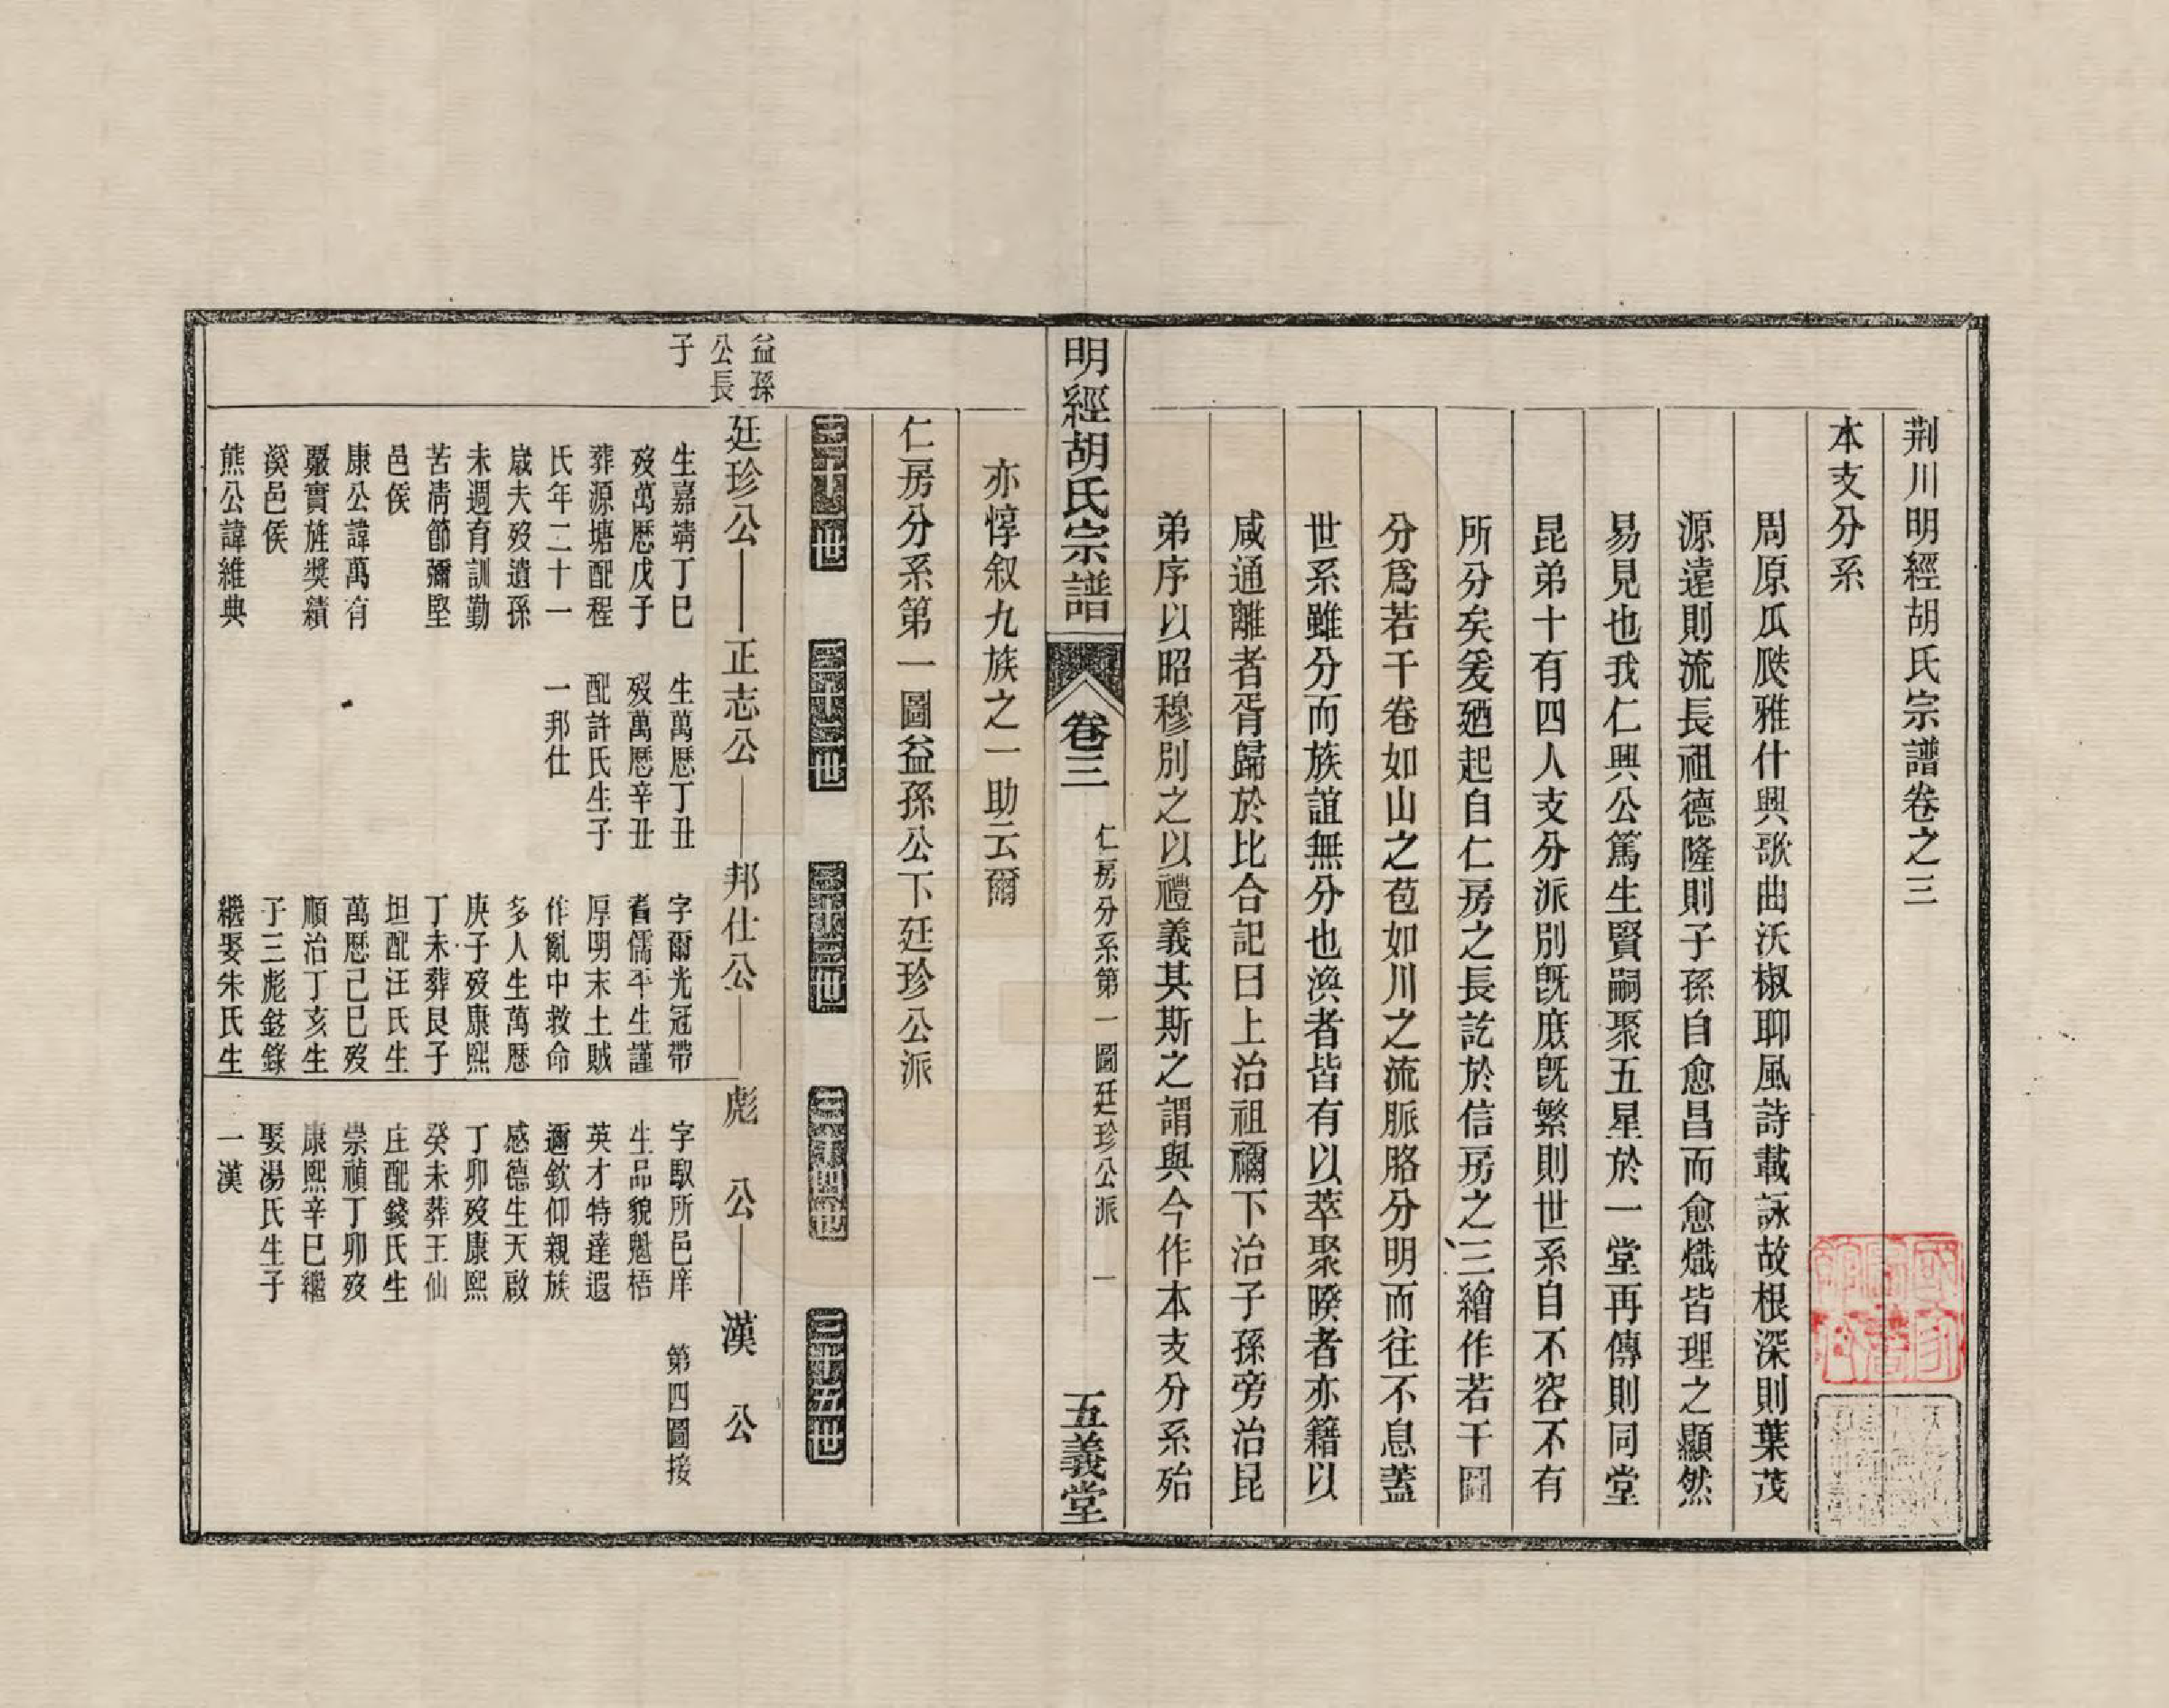 荆川明經胡氏宗譜卷之三
本支分系
周原瓜瓞雅什興歌曲沃椒聊風詩載詠故根深則葉茂
源遠則流長祖德隆則子孫自愈昌而愈熾皆理之顯然
易見也我仁興公篤生賢嗣聚五星於一堂再傳則同堂
昆弟十有四人支分派別旣庶旣繁則世系自不容不有
所分矣爰廼起自仁房之長訖於信房之三繪作若干圖
分爲若干卷如山之苞如川之流脈胳分明而往不息蓋
世系雖分而族誼無分也渙者皆有以萃聚暌者亦籍以
咸通離者胥歸於比合記曰上治祖禰下治子孫旁治昆
弟序以昭穆別之以禮義其斯之謂與今作本支分系殆
明經胡氏宗譜
卷三
仁房分系第一圖廷珍公派
一
五義堂
亦惇叙九族之一助云爾
仁房分系第一圖益孫公下廷珍公派
三十一世
三十二世
三十三世
三十四世
三十五世
益孫
公長
子
廷珍公
正志公
邦仕公
彪公
漢公
生嘉靖丁巳
歿萬厯戊子
葬源塘配程
氏年二十一
歲夫歿遺孫
未週育訓勤
苦凊節彌堅
邑侯
康公諱萬有
嚴實旌獎續
溪邑侯
熊公諱維典
生萬厯丁丑
歿萬厯辛丑
配許氏生子
一邦仕
字爾光冠帶
耆儒平生謹
厚明末土賊
作亂中救命
多人生萬厯
庚子歿康熙
丁未葬艮子
坦配汪氏生
萬厯己巳歿
順治丁亥生
子三彪鉉錄
繼娶朱氏生
字馭所邑庠
生品貌魁梧
英才特達遐
邇欽仰親族
感德生天啟
丁卯歿康熙
癸未葬王仙
庄配錢氏生
崇禎丁卯歿
康熙辛巳繼
娶湯氏生子
一漢
第四圖接